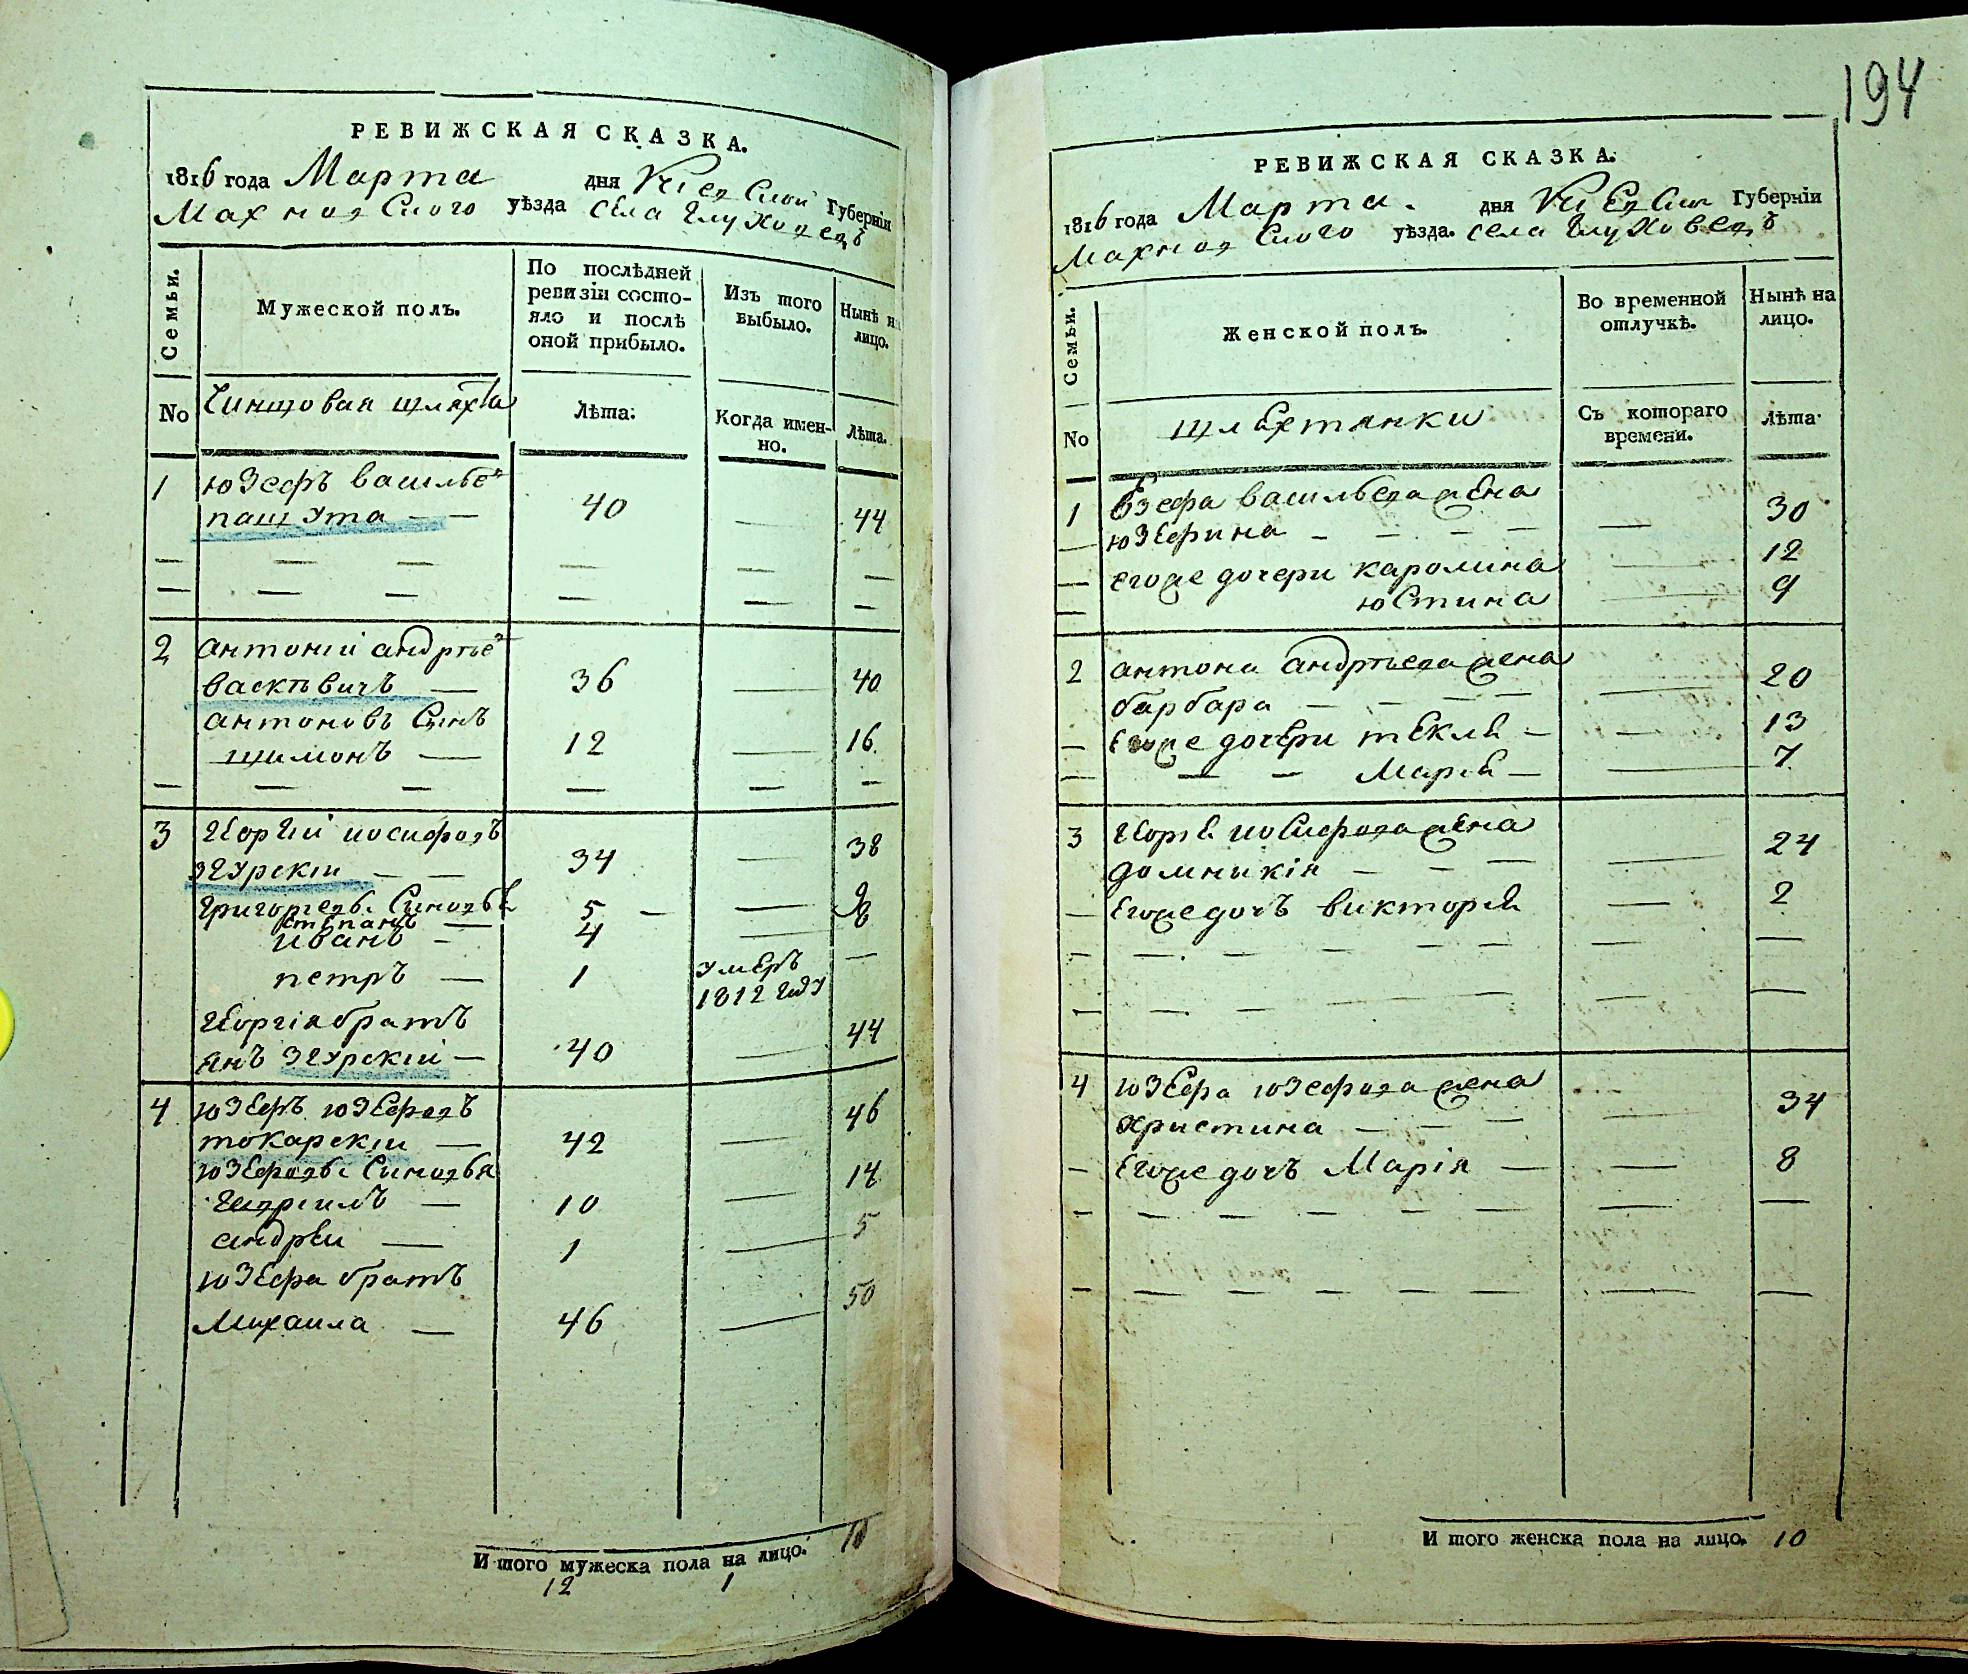 РЕВИЖСКАЯ СКАЗКА.
1816 года Марта дня Киевской Губерніи
Махновского уѣзда села Глуховецъ
Семьи.
Мужеской полъ.
По послѣдней
ревизіи состо-
яло и послѣ
оной прибыло.
Изъ того
выбыло.
Нынѣ на
лицо.
No
Чиншовая шляхта
Лѣта.
Когда имен-
но.
Лѣта.
1 Юзефъ васильев
пашута — — 40 — 44
2 антоній андрѣев
васкѣвичъ — 36 — 40
антоновъ Сынъ
шимонъ — 12 — 16
3 Георгій иосифовъ
згурскій — — 34 — 38
Григориевы Синовья
степанъ — 5 — 9
иванъ — 4 — 8
петръ — 1 умеръ —
1812 году
Георгія братъ
янъ згурскій — 40 — 44
4 юзефъ юзефовъ 46
токарскій — 42 —
юзефовы Синовья
10 — 14
андрей — 1 — 5
юзефа братъ
Михаила — 46 — 50
И того мужеска пола на лицо. 10
12 1
194
РЕВИЖСКАЯ СКАЗКА.
1816 года Марта. дня Киевской Губерніи
Махновского уѣзда. села Глуховецъ
Семьи.
Женской полъ.
Во временной
отлучкѣ.
Нынѣ на
лицо.
No
шляхтянки
Съ котораго
времени.
Лѣта
1 васильева жена
юзефина — — — — — 30
егоже дочери каролина — 12
юстина — 9
2 антона андрѣева жена
барбара — — — — 20
Егоже дочери текля — — 13
— — Марія — — 7
3 Георгія иосифова жена
домникія — — — — 24
Егоже дочъ викторія — 2
4 юзефа юзефова жена
христина — — — — 34
Егоже дочъ Марія — — 8
И того женска пола на лицо. 10